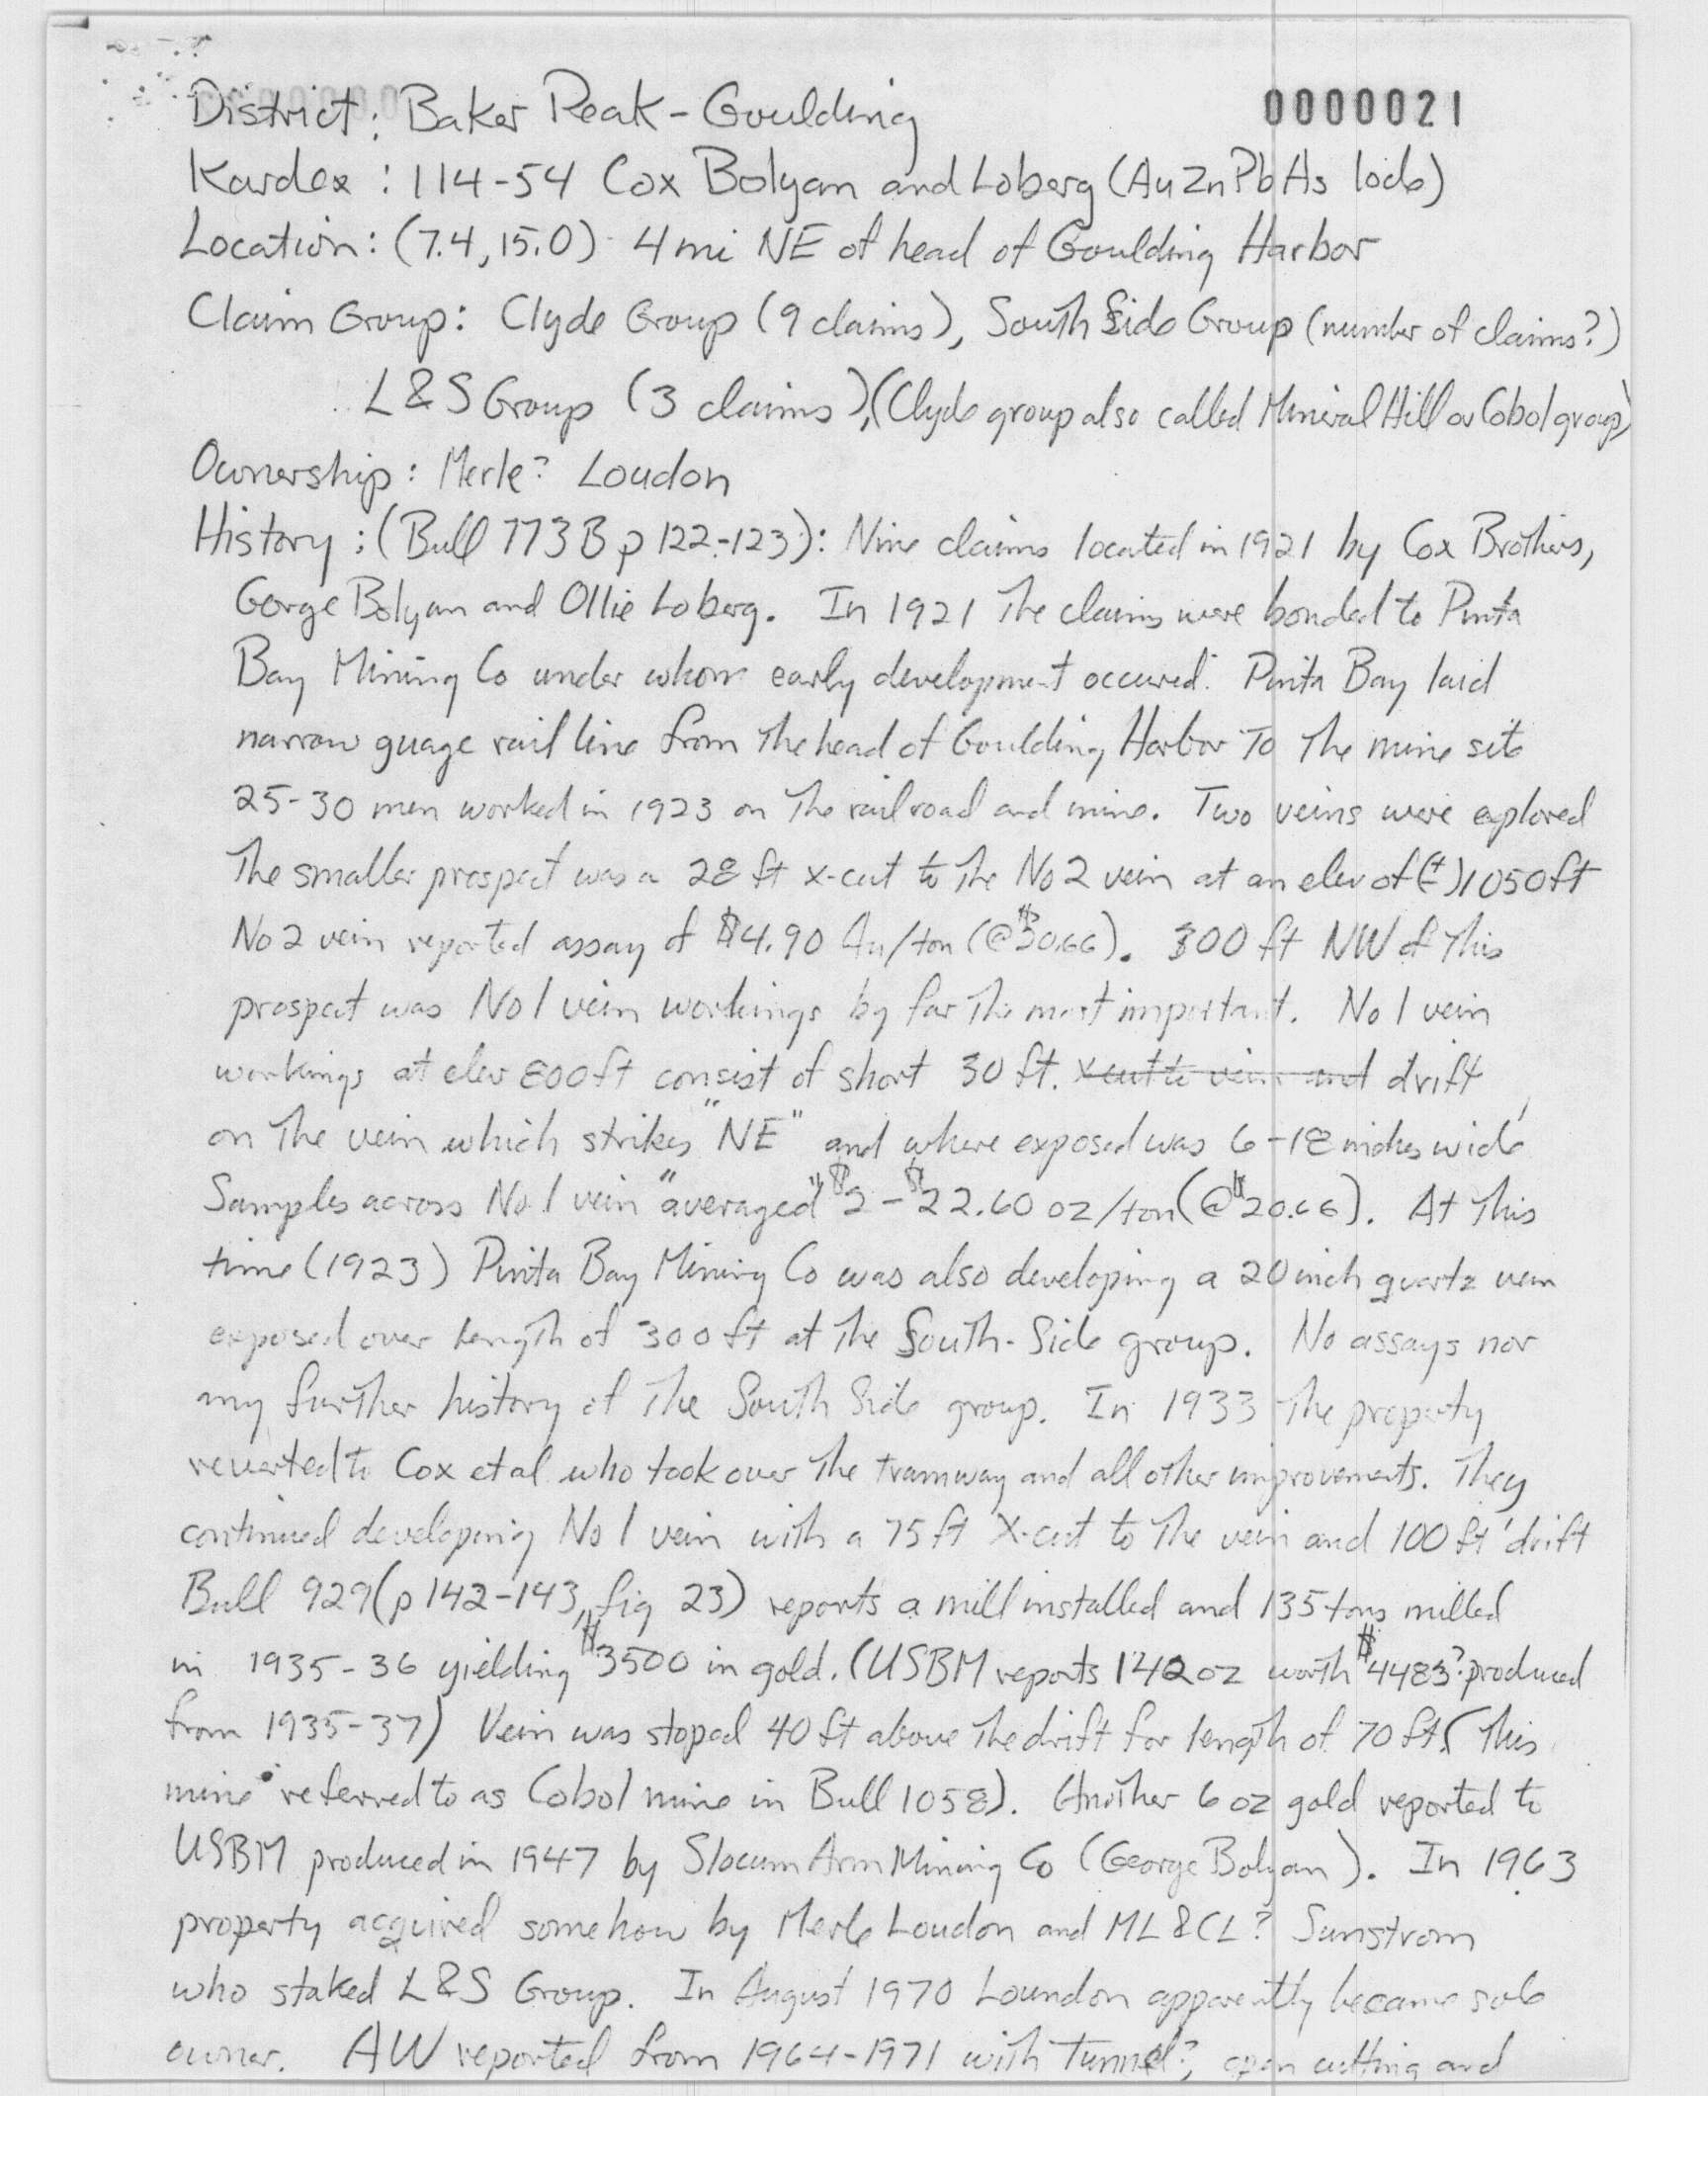 District: Baker Peak-Goulding 0000021
Kardex: 114-54 Cox Bolyan and Loberg (Au Zn Pb As lode)
Location: (7.4, 15.0) 4 mi NE of head of Goulding Harbor
Claim Group: Clyde Group (9 claims), South Side Group (number of claims?)
L&S Group (3 claims), (Clyde group also called Mineral Hill or Cobol group)
Ownership: Merle? Loudon
History: (Bull 773B p 122-123): Nine claims located in 1921 by Cox Brothers,
Gorge Bolyan and Ollie Loberg. In 1921 The claims were bonded to Pinta
Bay Mining Co under whom early development occured. Pinta Bay laid
narrow guage rail line from The head of Goulding Harbor To The mine site
25-30 men worked in 1923 on The railroad and mine. Two veins were explored
The smaller prospect was a 28 ft x-cut to The No 2 vein at an elev of (±)1050 ft
No 2 vein reported assay of $4.90 Au/ton (@ $20.66). 300 ft NW of This
prospect was No 1 vein workings by far The most important. No 1 vein
workings at elev 800 ft consist of short 30 ft. xcut to vein and drift
on The vein which strikes "NE" and where exposed was 6-18 inches wide
Samples across No 1 vein "averaged" $2 - $22.60 oz/ton (@ $20.66). At This
time (1923) Pinta Bay Mining Co was also developing a 20 inch quartz vein
exposed over length of 300 ft at The South-Side group. No assays nor
any further history of The South Side group. In 1933 The property
reverted to Cox et al who took over The tramway and all other improvements. They
continued developing No 1 vein with a 75 ft X-cut to The vein and 100 ft drift
Bull 929 (p 142-143, fig 23) reports a mill installed and 135 tons milled
in 1935-36 yielding $3500 in gold. (USBM reports 142 oz worth $4483? produced
from 1935-37) Vein was stoped 40 ft above The drift for length of 70 ft. (This
mine referred to as Cobol mine in Bull 1058). Another 6 oz gold reported to
USBM produced in 1947 by Slocum Arm Mining Co (George Bolyan). In 1963
property acquired somehow by Merle Loudon and ML & CL? Sunstrom
who staked L&S Group. In August 1970 Loundon apparently became sole
owner. AW reported from 1964-1971 with Tunnel?, open cutting and